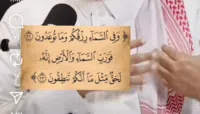 ﴿ وَفِي السَّمَاءِ رِزْقُكُمْ وَمَا تُوعَدُونَ ﴿٢٢﴾
فَوَرَبِّ السَّمَاءِ وَالْأَرْضِ إِنَّهُ
لَحَقٌّ مِّثْلَ مَا أَنَّكُمْ تَنطِقُونَ ﴿٢٣﴾ ﴾